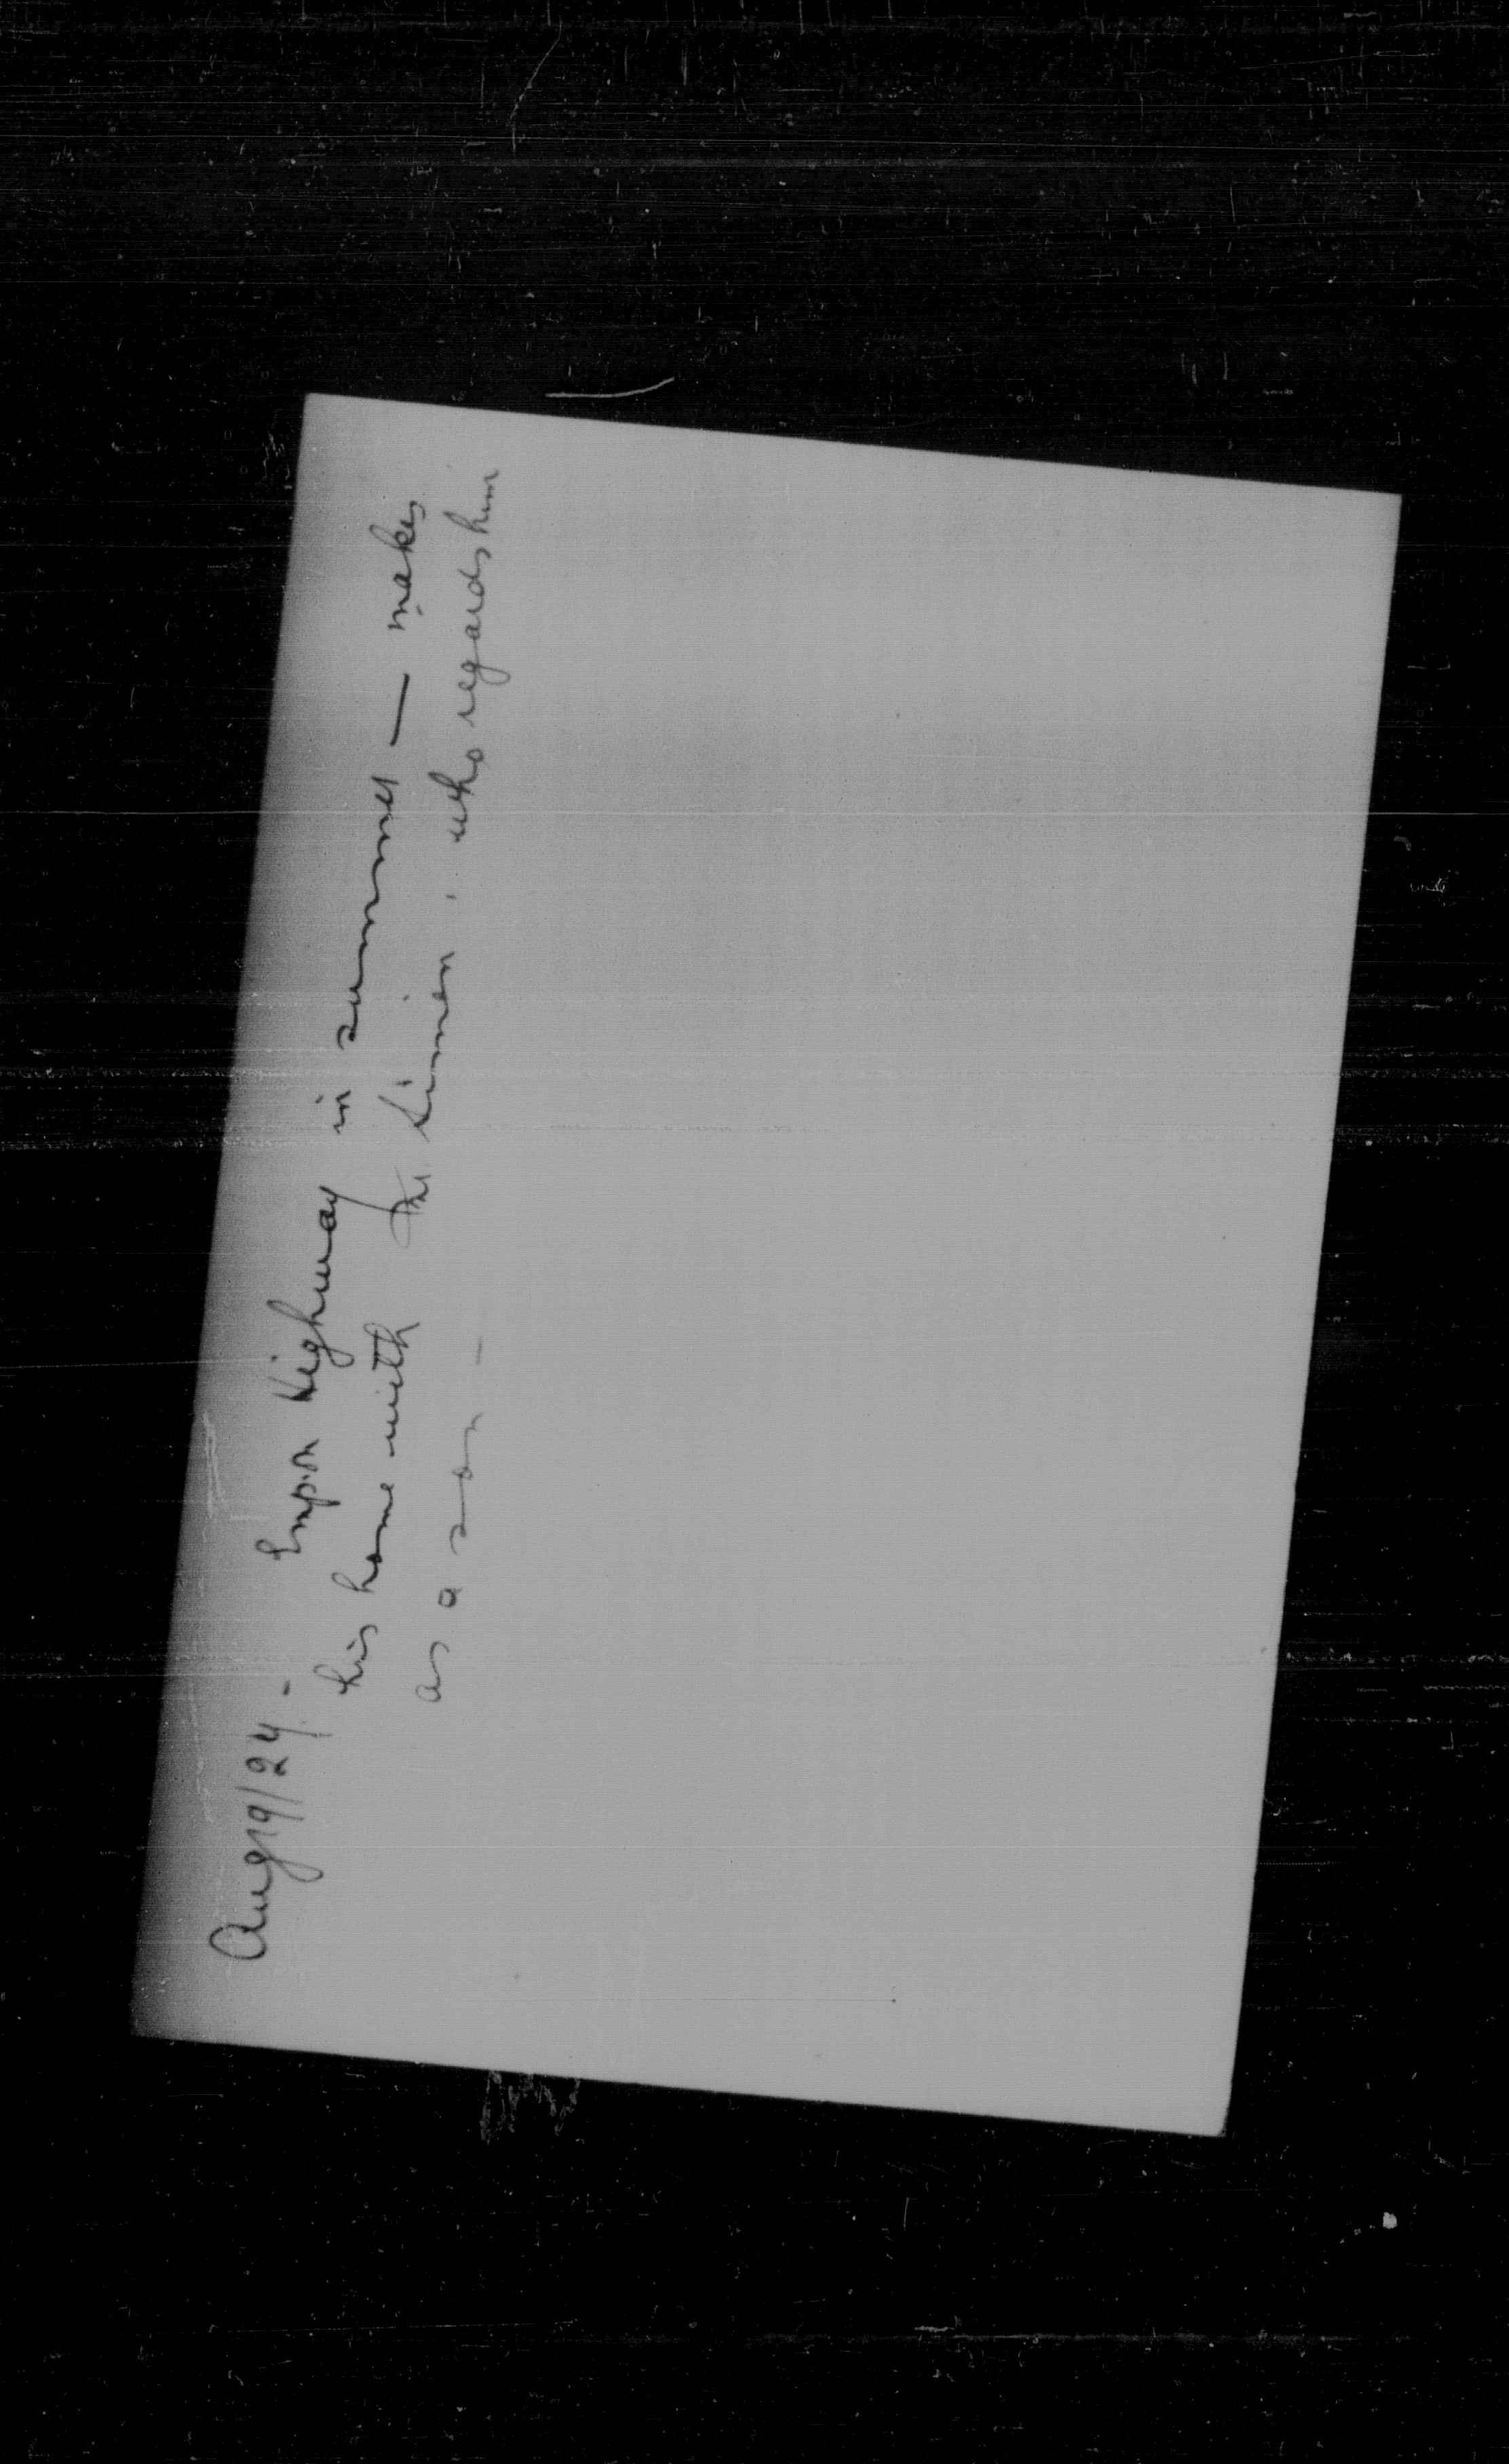 Aug 19/24. - Emp. on Highway in summer — makes
his home with Mr. Simon, who regards him
as a son -